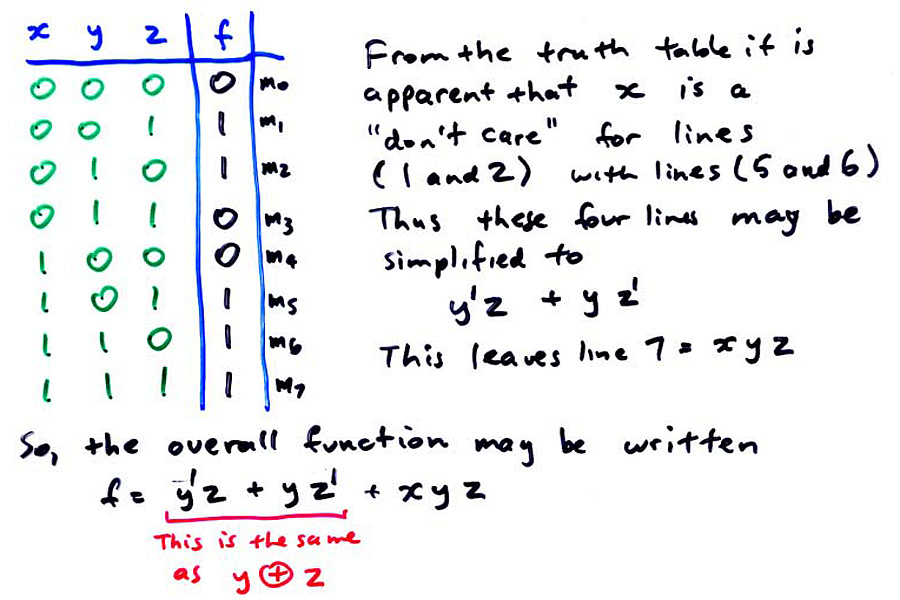 x y z f
0 0 0 0 m0
0 0 1 1 m1
0 1 0 1 m2
0 1 1 0 m3
1 0 0 0 m4
1 0 1 1 m5
1 1 0 1 m6
1 1 1 1 m7
From the truth table it is
apparent that x is a
"don't care" for lines
(1 and 2) with lines (5 and 6)
Thus these four lines may be
simplified to
y'z + yz'
This leaves line 7 = xyz
So, the overall function may be written
f = y'z + yz' + xyz
This is the same
as y ⊕ z